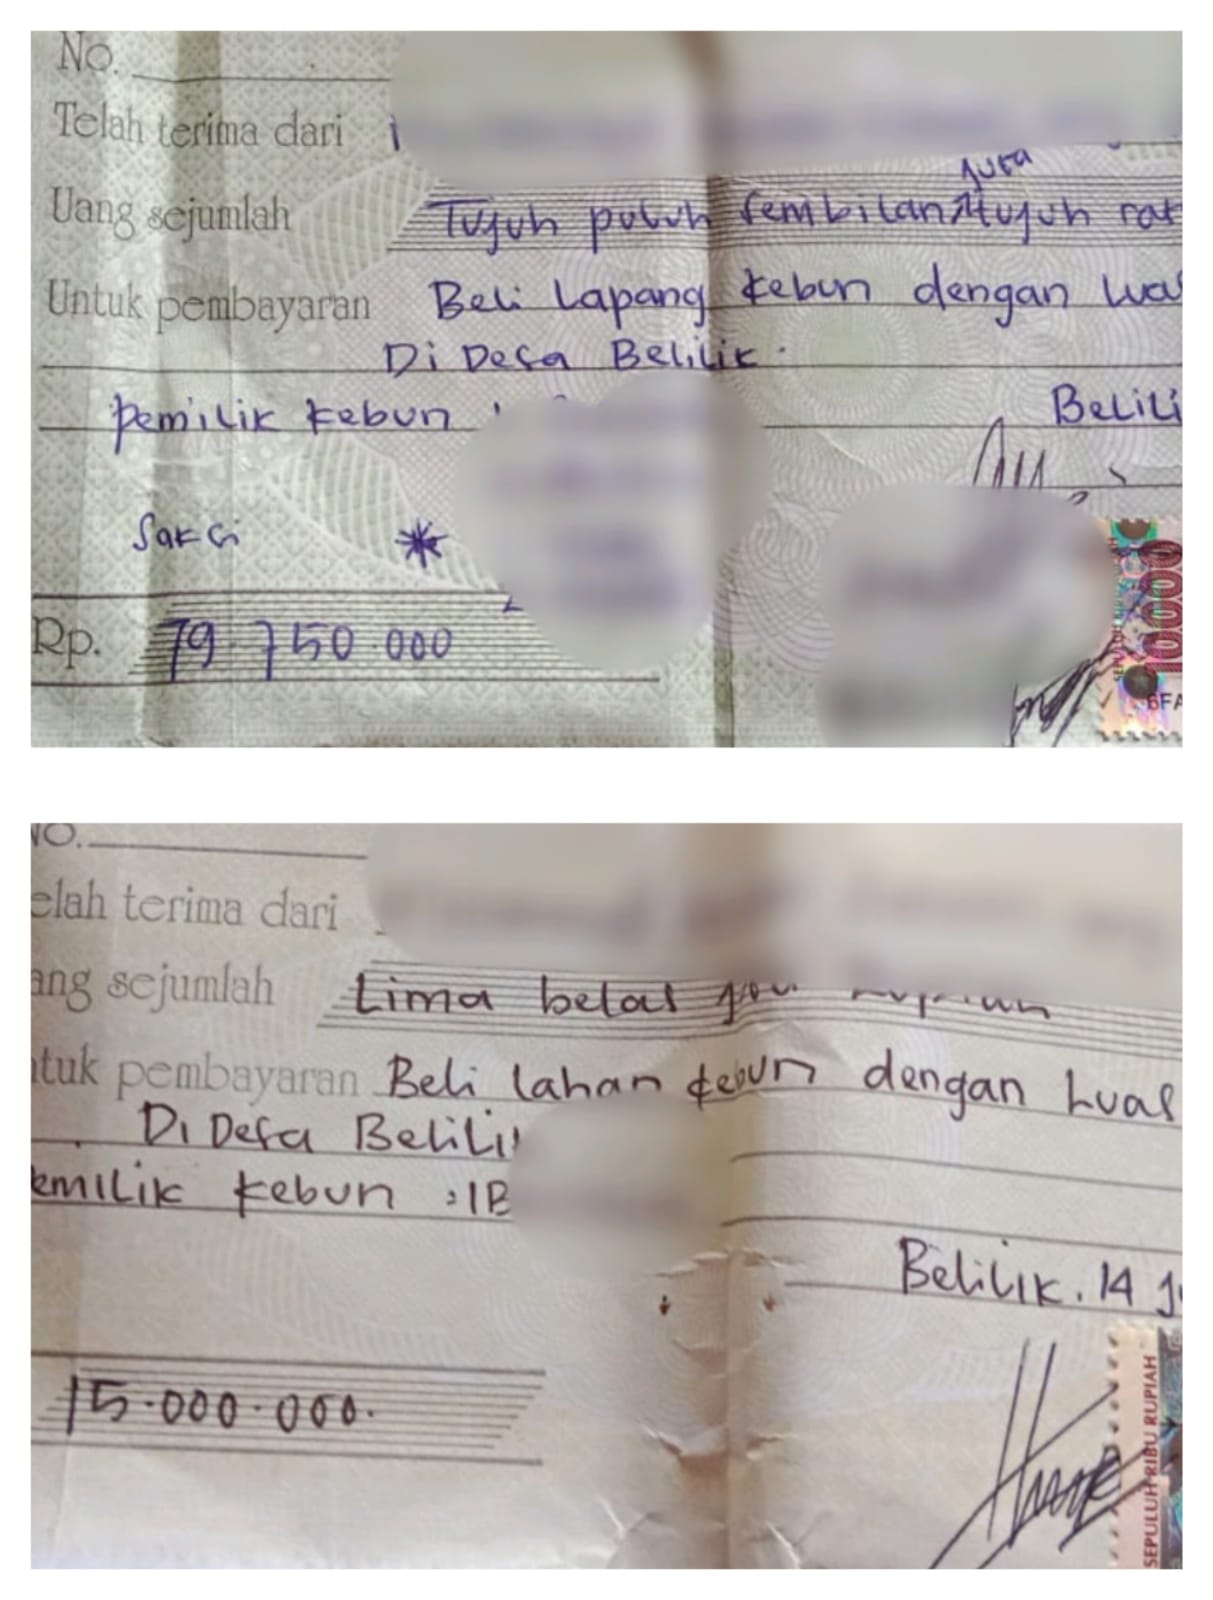 No.
Telah terima dari
juta
Uang sejumlah Tujuh puluh sembilan tujuh rat
Untuk pembayaran Beli Lapang kebun dengan Lua
Di Desa Belilik.
Pemilik kebun :
Belili
Saksi
Rp. 79.750.000
SEPULUH
10000
BFA
NO.
elah terima dari
ang sejumlah Lima belas
ntuk pembayaran Beli lahan kebun dengan Luas
Di Desa Belili
emilik kebun : IB
Belilik. 14 J
15.000.000.
SEPULUH RIBU RUPIAH